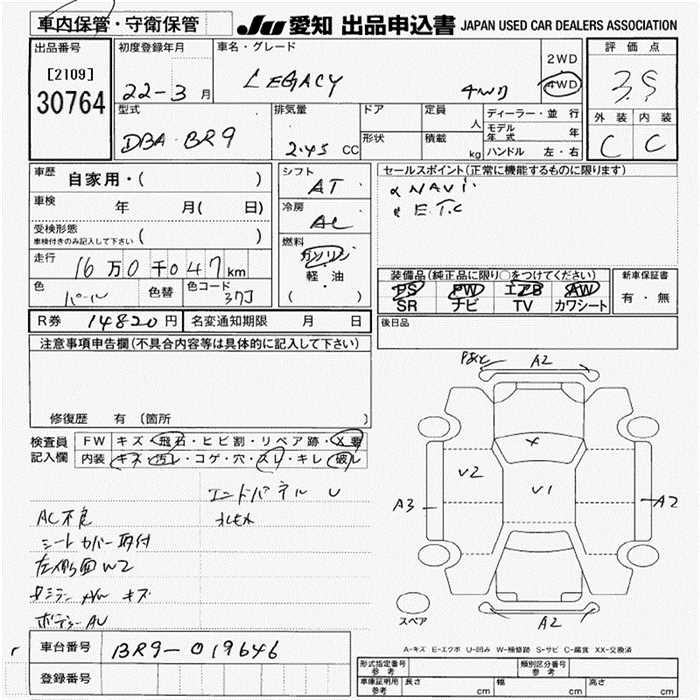 車内保管・守衛保管
JU 愛知 出品申込書 JAPAN USED CAR DEALERS ASSOCIATION
出品番号
[2109]
30764
初度登録年月
22-3 月
車名・グレード
LEGACY 4WD
2WD
4WD
評価点
3.5
外装 内装
C C
型式
DBA-BR9
排気量
2.45 CC
ドア
形状
定員 人
積載 kg
ディーラー・並行
モデル年式 年
ハンドル 左・右
車歴 自家用・( )
車検 年 月( 日)
受検形態
車検付きのみ記入して下さい ( )
走行 16万0千047km
色 パール 色替 色コード 37J
シフト
AT
冷房
AC
燃料
ガソリン
軽・油
( )
セールスポイント(正常に機能するものに限ります)
NAVI
E.T.C
装備品(純正品に限り○をつけてください)
PS PW エアB AW
SR ナビ TV カワシート
新車保証書
有・無
R券 14820円 名変通知期限 月 日
後日品
注意事項申告欄(不具合内容等は具体的に記入して下さい)
修復歴 有(箇所 )
検査員
記入欄
FW キズ・飛石・ヒビ割・リペア跡・X要
内装 キズ・汚レ・コゲ・穴・スレ・キレ・破レ
エンドパネル U
AC不良
シートカバー取付
左側面W2
AW キズ
ボデーAU
A2
V2
V1
A3
A2
A2
スペア
A-キズ E-エクボ U-凹み W-補修跡 S-サビ C-腐食 XX-交換済
車台番号 BR9-019646
登録番号
形式指定番号
参考
類別区分番号
参考
車庫証明用
参考
長さ cm 幅 cm 高さ cm